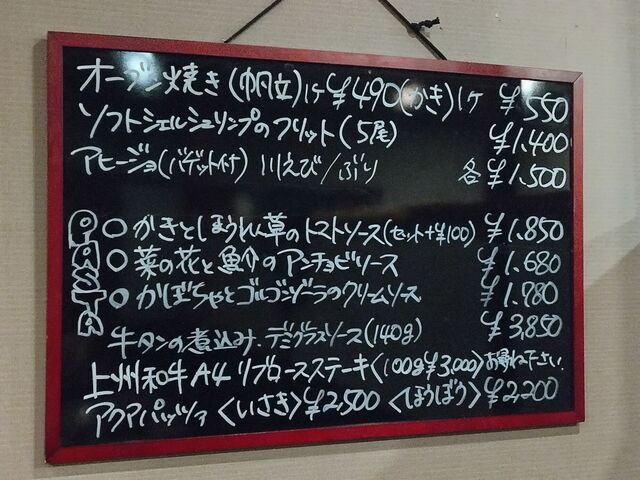 オーブン焼き(帆立)1ヶ ¥490(かき)1ヶ ¥550
ソフトシェルシュリンプのフリット(5尾) ¥1.400
アヒージョ(バゲット付) 川えび/ぶり 各¥1.500
PASTA
○かきとほうれん草のトマトソース(セット+¥100) ¥1.850
○菜の花と魚介のアンチョビソース ¥1.680
○かぼちゃとゴルゴンゾーラのクリームソース ¥1.780
牛タンの煮込み.デミグラスソース(140g) ¥3,850
上州和牛A4リブロースステーキ〈100g¥3,000〉お尋ね下さい.
アクアパッツァ〈いさき〉¥2,500〈ほうぼう〉¥2,200